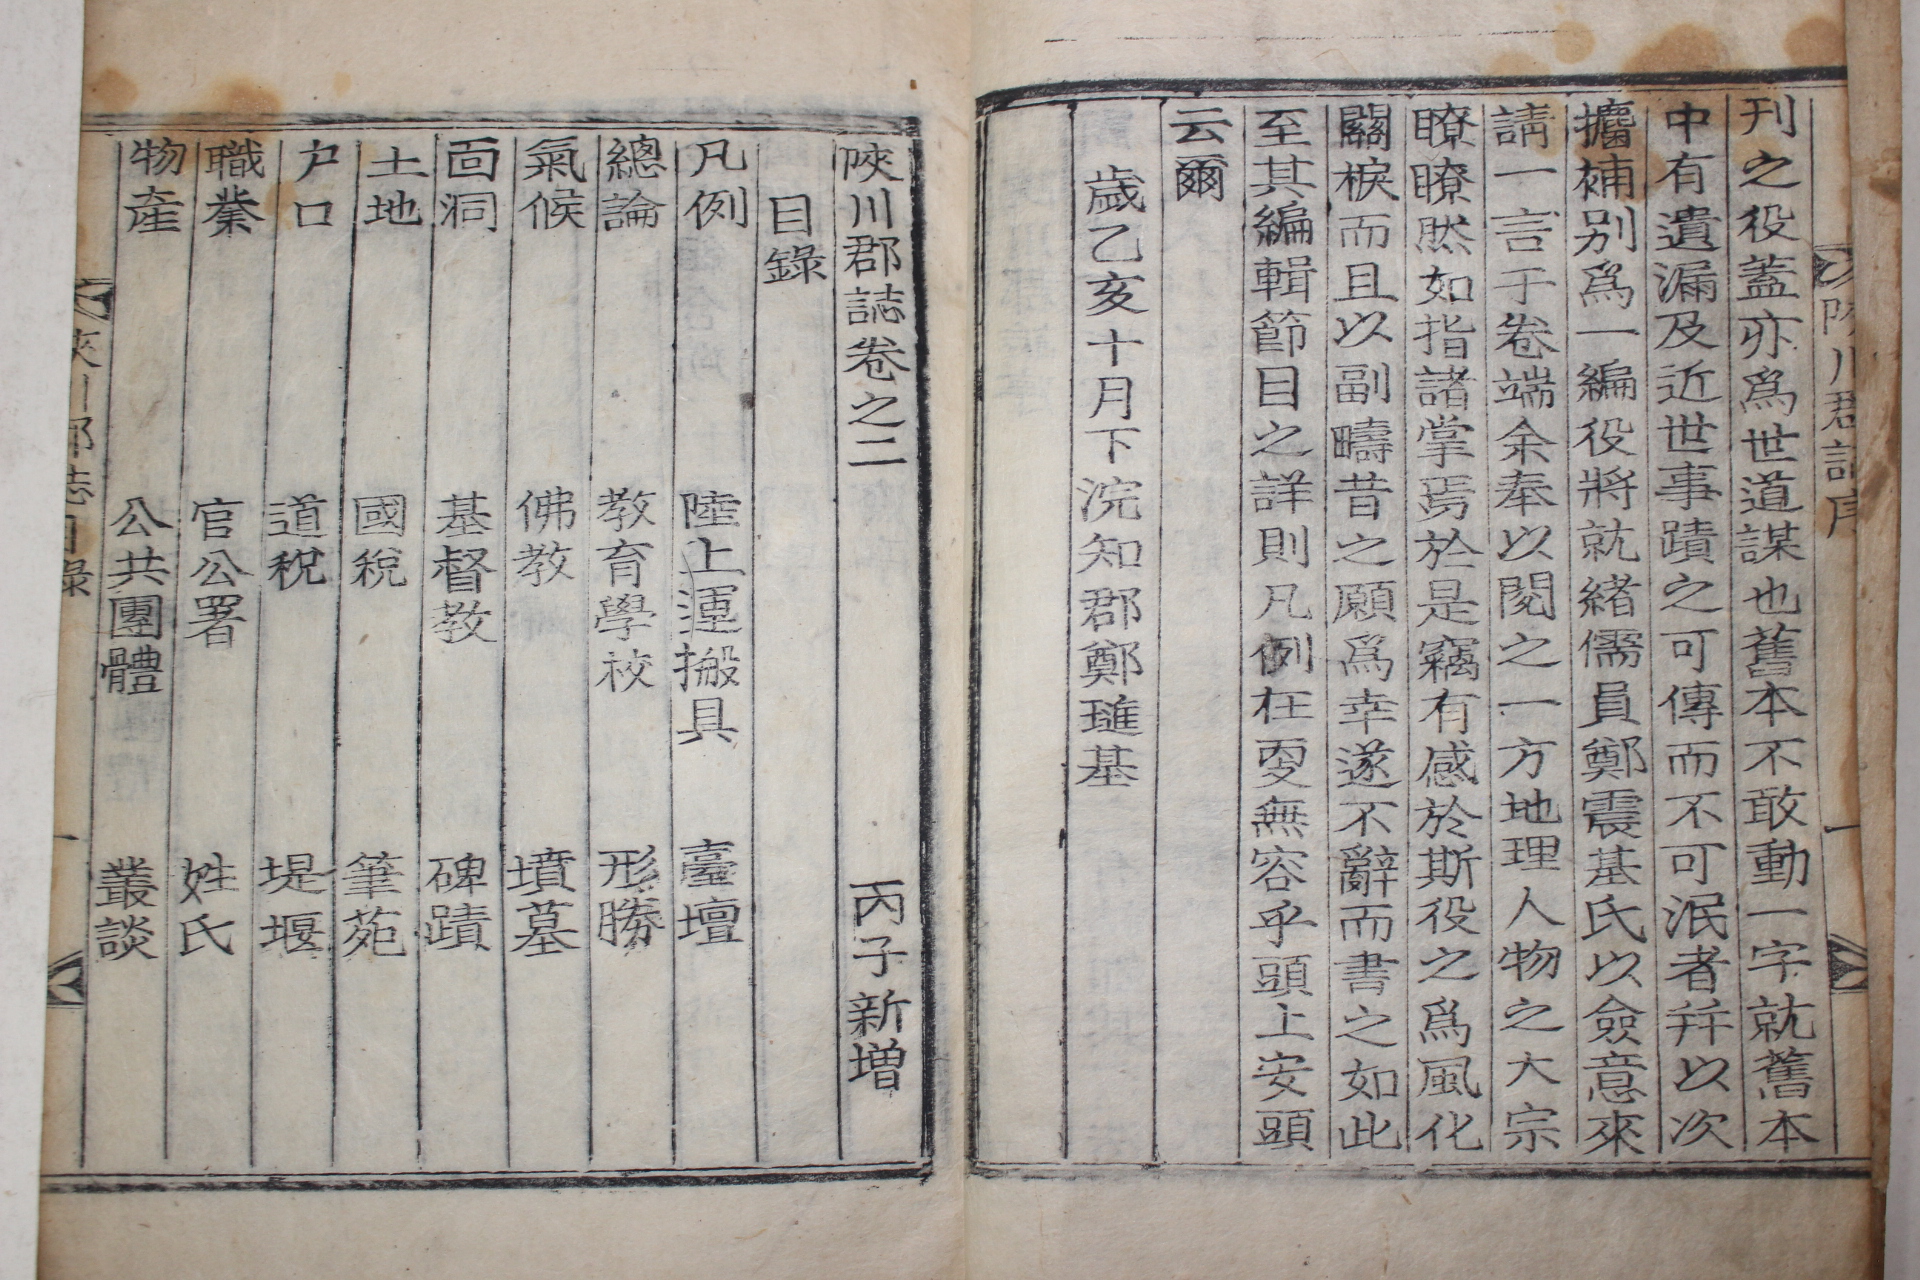 刊之役蓋亦爲世道謀也舊本不敢動一字就舊本
中有遺漏及近世事蹟之可傳而不可泯者幷以次
攟補別爲一編役將就緒儒員鄭震基氏以僉意來
請一言于卷端余奉以閱之一方地理人物之大宗
瞭瞭然如指諸掌焉於是竊有感於斯役之爲風化
關棙而且以副疇昔之願爲幸遂不辭而書之如此
至其編輯節目之詳則凡例在更無容乎頭上安頭
云爾
歲乙亥十月下浣知郡鄭璡基
陜川郡誌卷之二 丙子新增
目錄
凡例 陸上運搬具 臺壇
總論 教育學校 形勝
氣候 佛教 墳墓
面洞 基督教 碑蹟
土地 國稅 筆苑
户口 道稅 堤堰
職業 官公署 姓氏
物產 公共團體 叢談
陜川郡誌目錄 一